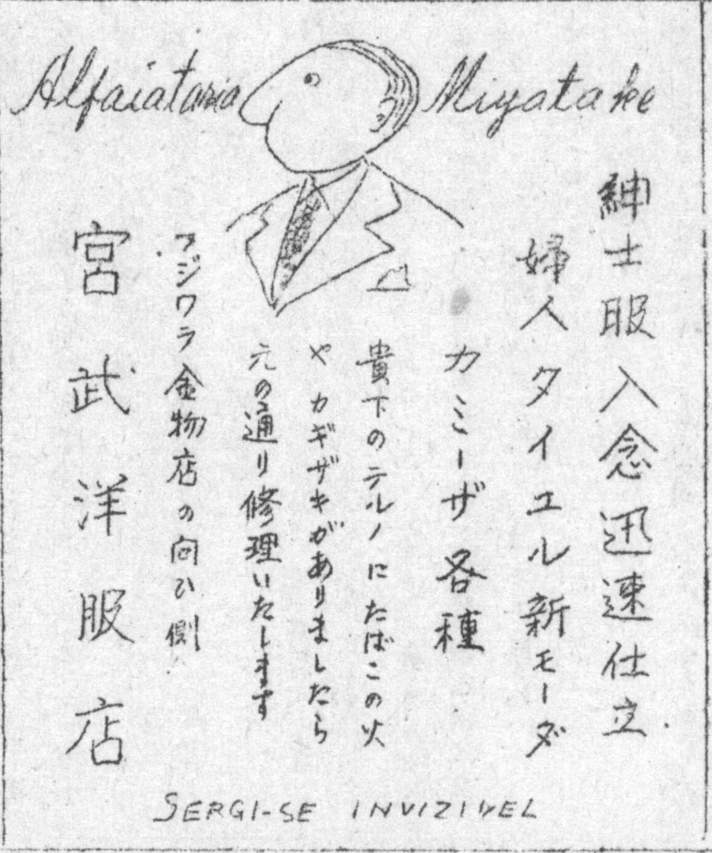 Alfaiataria Miyatake
紳士服入念迅速仕立
婦人タイエル新モーダ
カミーザ各種
貴下のテルノにたばこの火
やカギザキがありましたら
元の通り修理いたします
フジワラ金物店の向ひ側
宮武洋服店
SERGI-SE INVIZIVEL